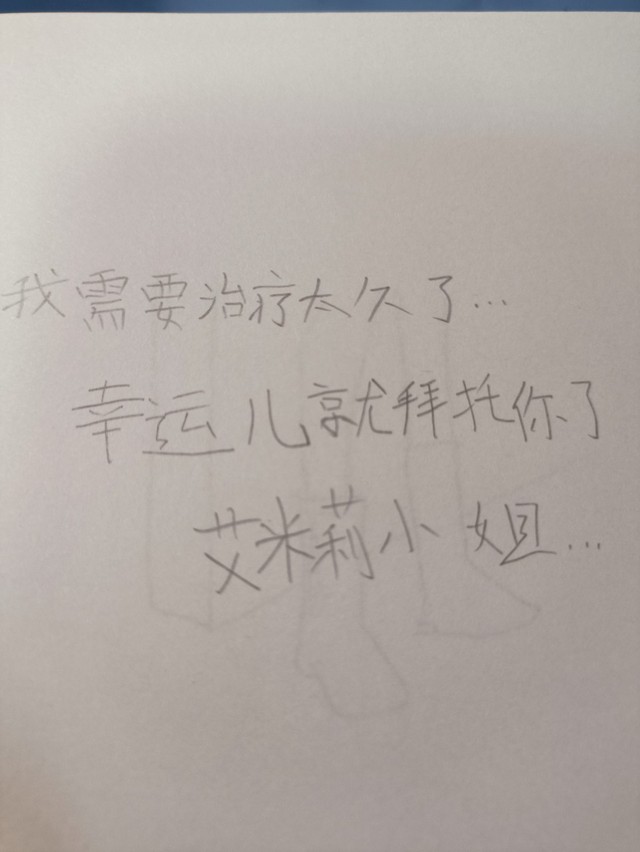 我需要治疗太久了…
幸运儿就拜托你了
艾米莉小姐…